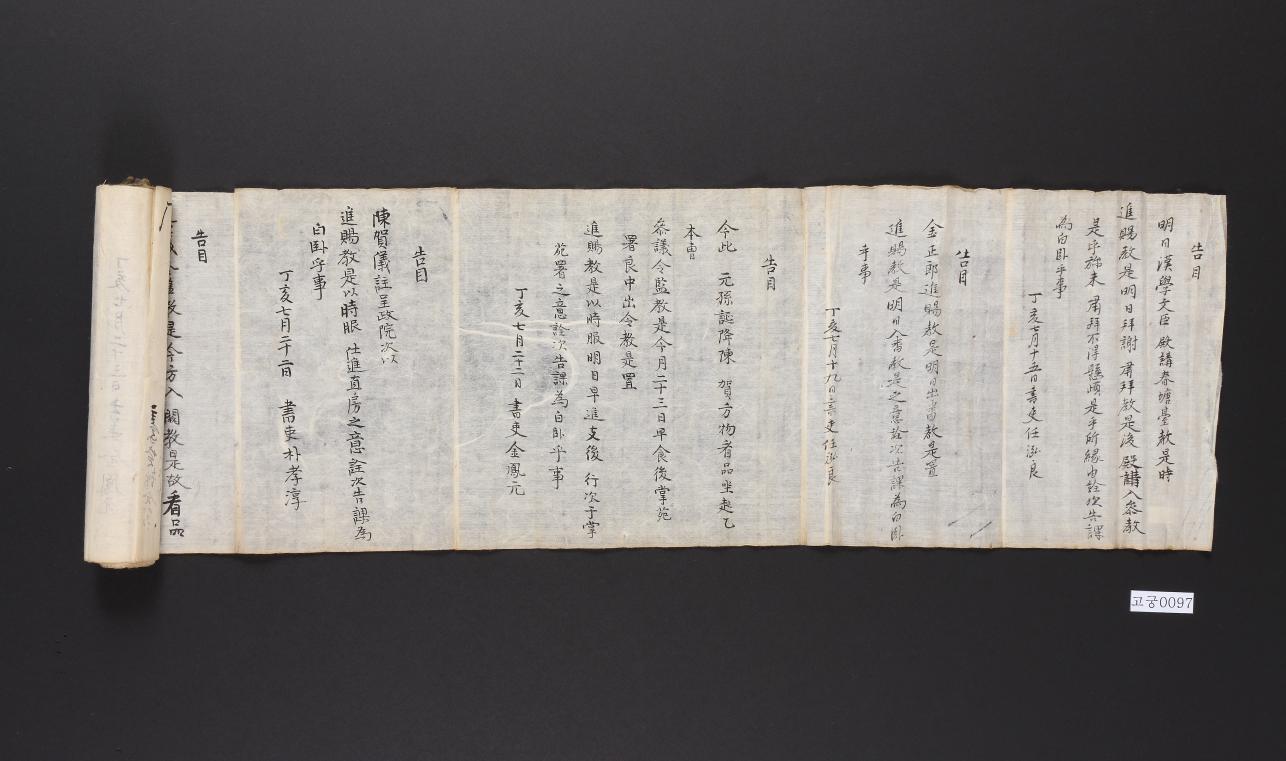 告目
明日漢學文臣 殿講春塘臺教是時
進賜教是明日拜謝 肅拜教是後 殿講入參教
是乎旀未 肅拜不得懸頉是乎所緣由詮次告課
為白卧乎事
丁亥七月十五日書吏任 良
告目
金正郎進賜教是明日出番教是置
進賜教是明日入番教是之意詮次告課為白卧
乎事
丁亥七月十九日書吏任 良
告目
今此 元孫誕降陳 賀方物看品坐起乙
本曹
參議令監教是今月二十三日早食後掌苑
署良中出令教是置
進賜教是以時服明日早進支後 行次于掌
苑署之意詮次告課為白卧乎事
丁亥七月二十二日 書吏金鳳元
告目
陳賀儀註呈政院次以
進賜教是以時服 仕進直房之意詮次告課為
白卧乎事
丁亥七月二十二日 書吏朴孝淳
告目
教是今方入 闕教是故看品
丁亥七月二十三日
고궁0097